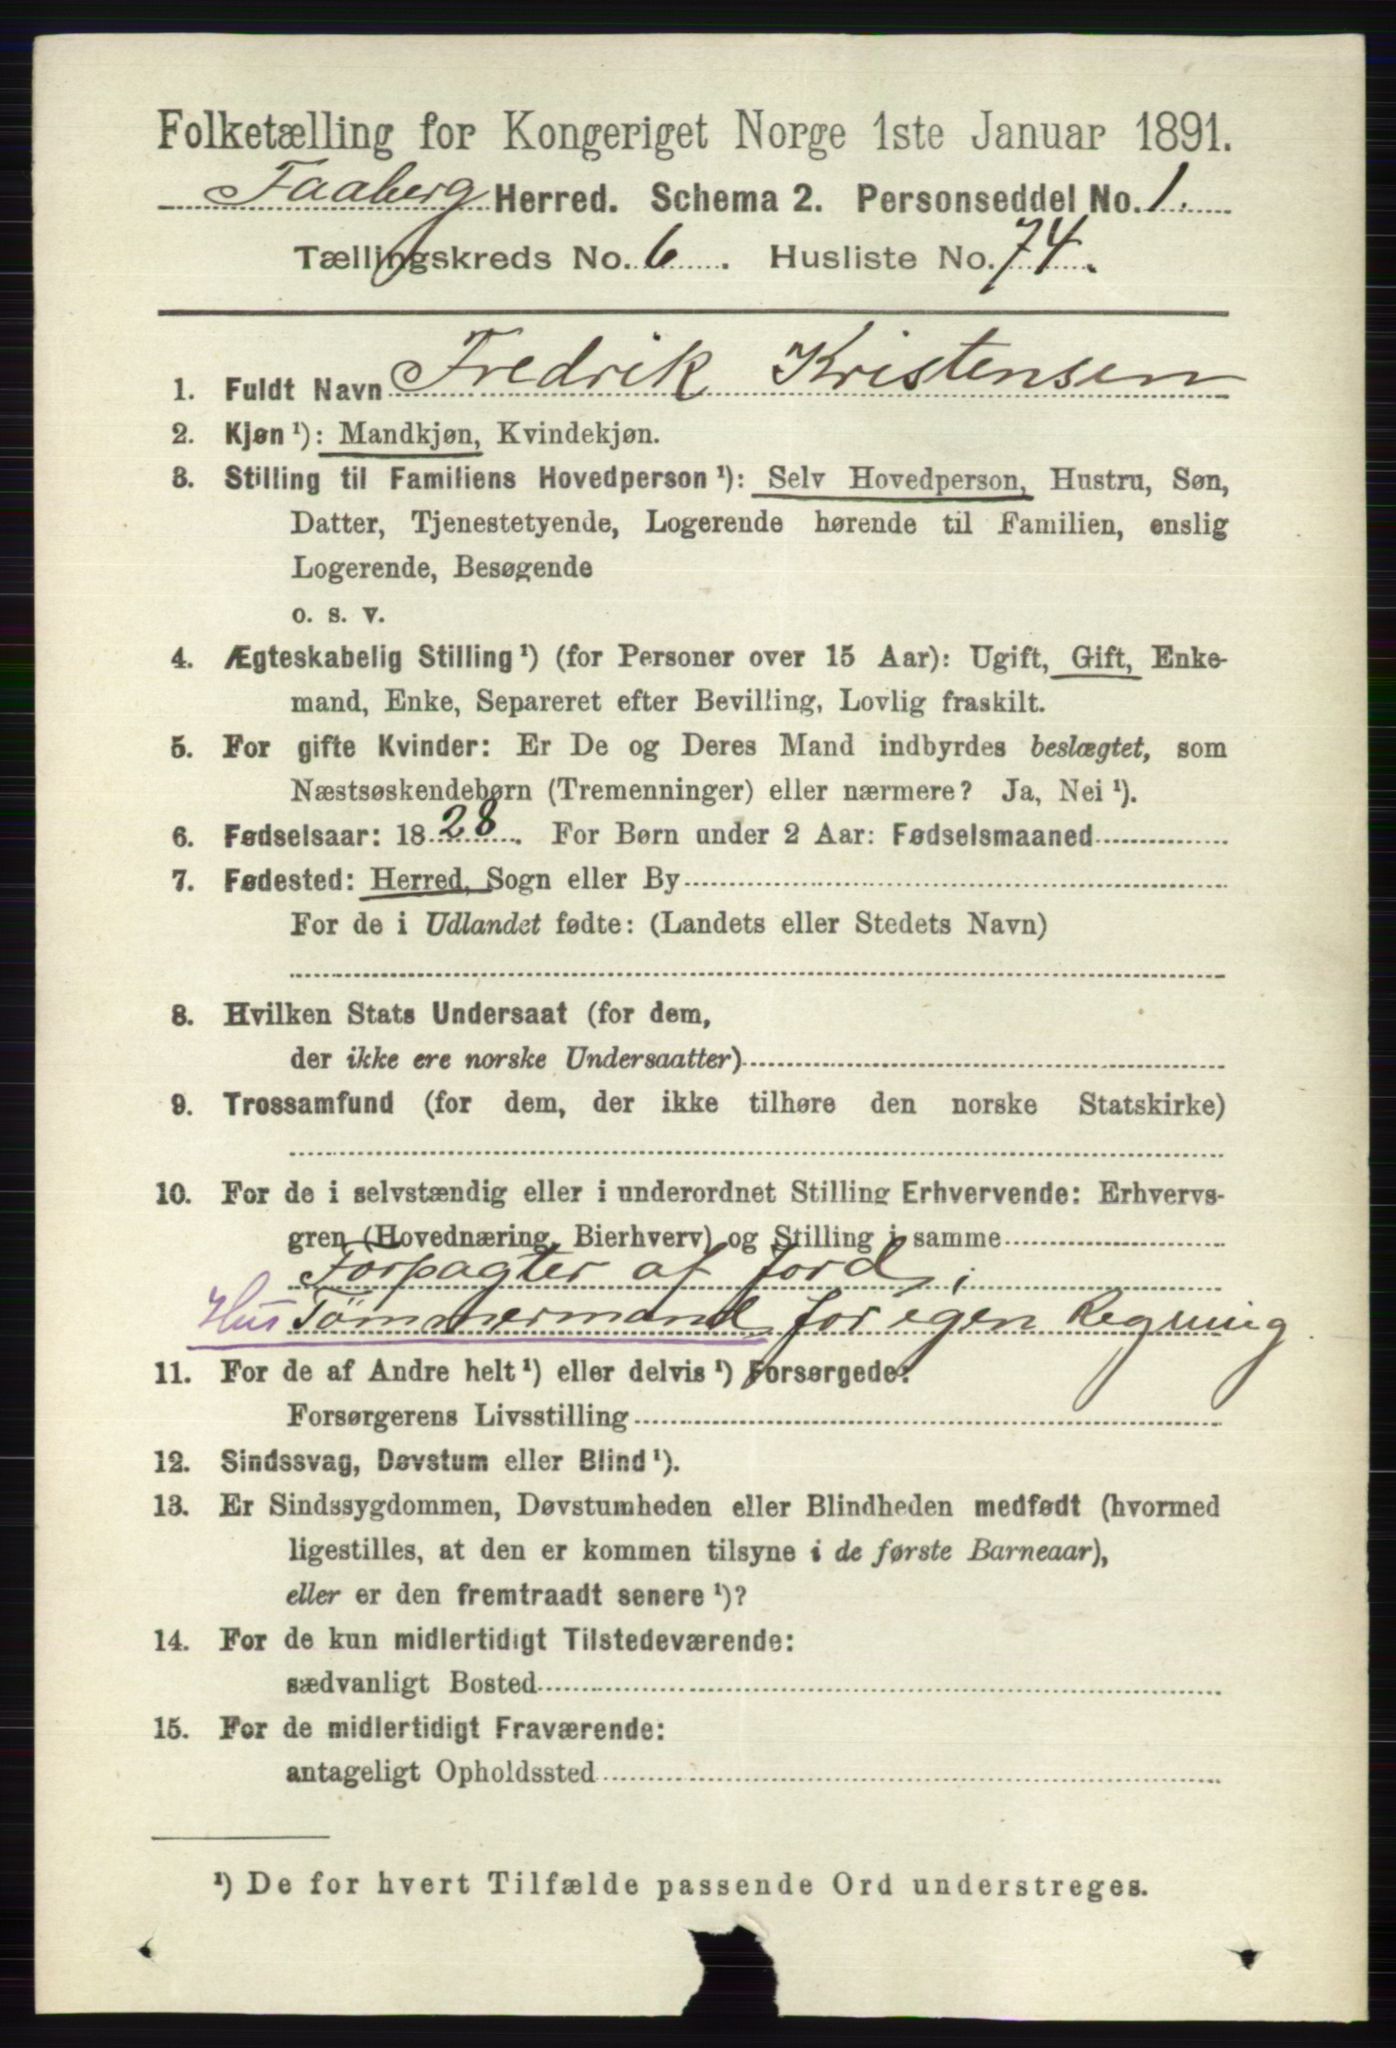 Folketælling for Kongeriget Norge 1ste Januar 1891.
Faaberg Herred. Schema 2. Personseddel No. 1.
Tællingskreds No. 6. Husliste No. 74.
1. Fuldt Navn Fredrik Kristensen
2. Kjøn ¹): Mandkjøn, Kvindekjøn.
3. Stilling til Familiens Hovedperson ¹): Selv Hovedperson, Hustru, Søn,
Datter, Tjenestetyende, Logerende hørende til Familien, enslig
Logerende, Besøgende
o. s. v.
4. Ægteskabelig Stilling ¹) (for Personer over 15 Aar): Ugift, Gift, Enke-
mand, Enke, Separeret efter Bevilling, Lovlig fraskilt.
5. For gifte Kvinder: Er De og Deres Mand indbyrdes beslægtet, som
Næstsøskendebørn (Tremenninger) eller nærmere? Ja, Nei ¹).
6. Fødselsaar: 1828. For Børn under 2 Aar: Fødselsmaaned
7. Fødested: Herred, Sogn eller By
For de i Udlandet fødte: (Landets eller Stedets Navn)
8. Hvilken Stats Undersaat (for dem,
der ikke ere norske Undersaatter)
9. Trossamfund (for dem, der ikke tilhøre den norske Statskirke)
10. For de i selvstændig eller i underordnet Stilling Erhvervende: Erhvervs-
gren (Hovednæring, Bierhverv) og Stilling i samme
Forpagter af Jord,;
Hus Tømmermand for egen Regning
11. For de af Andre helt ¹) eller delvis ¹) Forsørgede:
Forsørgerens Livsstilling
12. Sindssvag, Døvstum eller Blind ¹).
13. Er Sindssygdommen, Døvstumheden eller Blindheden medfødt (hvormed
ligestilles, at den er kommen tilsyne i de første Barneaar),
eller er den fremtraadt senere ¹)?
14. For de kun midlertidigt Tilstedeværende:
sædvanligt Bosted
15. For de midlertidigt Fraværende:
antageligt Opholdssted
¹) De for hvert Tilfælde passende Ord understreges.